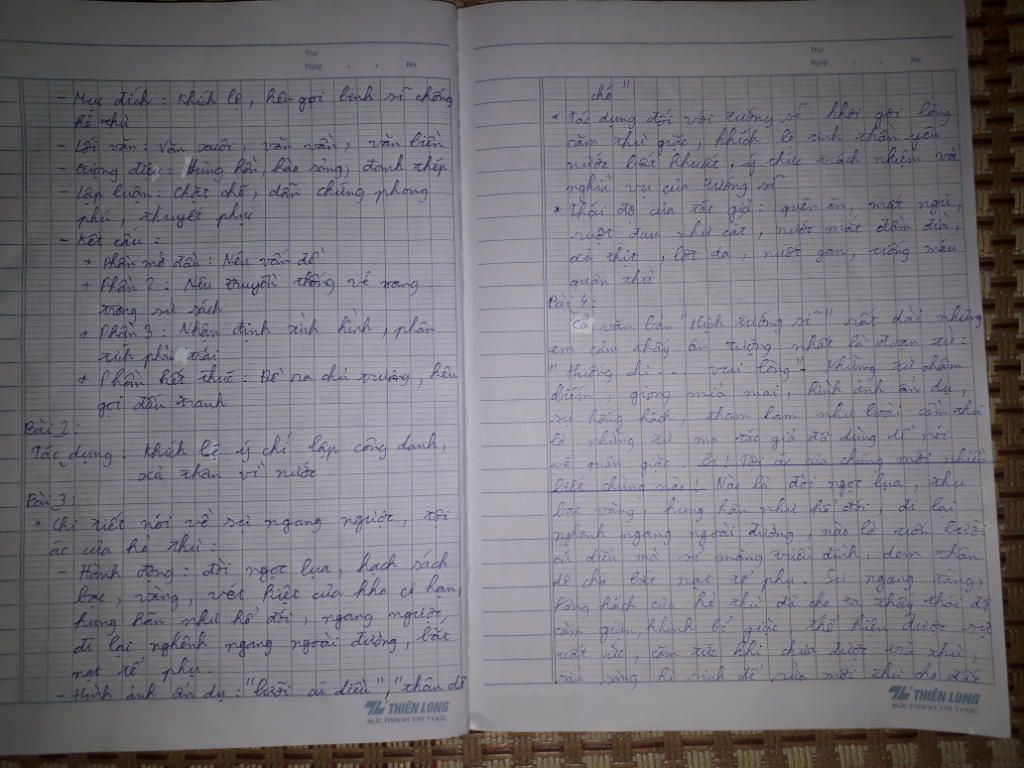 Thứ
Ngày . . No.
- Mục đích : Khích lệ, kêu gọi binh sĩ chống
kẻ thù
- Lời văn : Văn xuôi, văn vần, văn biền
- Giọng điệu : Hùng hồn, hào sảng, đanh thép
- Lập luận : Chặt chẽ, dẫn chứng phong
phú, thuyết phục
- Kết cấu :
+ Phần mở đầu : Nêu vấn đề
+ Phần 2 : Nêu truyền thống vẻ vang
trong sử sách
+ Phần 3 : Nhận định tình hình, phân
tích phải trái
+ Phần kết thúc : Đề ra chủ trương, kêu
gọi đấu tranh
Bài 2 :
Tác dụng : Khích lệ ý chí lập công danh,
xả thân vì nước
Bài 3 :
* Chi tiết nói về sự ngang ngược, tội
ác của kẻ thù :
- Hành động : đòi ngọc lụa, hạch sách
bạc, vàng, vét kiệt của kho có hạn,
hung hãn như hổ đói, ngang ngược,
đi lại nghênh ngang ngoài đường, bắt
nạt tể phụ.
- Hình ảnh ẩn dụ : "lưỡi cú diều", "thân dê
THIÊN LONG
SỨC MẠNH TRI THỨC
Thứ
Ngày . . No.
chó"
* Tác dụng đối với tướng sĩ khơi gợi lòng
căm thù giặc, khích lệ tinh thần yêu
nước bất khuất, ý thức trách nhiệm và
nghĩa vụ của tướng sĩ
* Thái độ của tác giả : quên ăn, mất ngủ,
ruột đau như cắt, nước mắt đầm đìa,
xả thịt, lột da, nuốt gan, uống máu
quân thù
Bài 4 :
Cả văn bản "Hịch tướng sĩ" rất dài nhưng
em cảm thấy ấn tượng nhất là đoạn từ :
"Huống chi ... vui lòng". Những từ châm
biếm, giọng mỉa mai, hình ảnh ẩn dụ,
sự hống hách, tham lam như loài cầm thú
là những từ mà tác giả đã dùng để nói
về quân giặc. Ôi ! Tội ác của chúng mới nhiều
biết chừng nào ! Nào là đòi ngọc lụa, thu
bạc vàng, hung hãn như hổ đói, đi lại
nghênh ngang ngoài đường, nào là uốn lưỡi
cú diều mà sỉ mắng triều đình, đem thân
dê chó bắt nạt tể phụ. Sự ngang tàng,
hống hách của kẻ thù đã cho ta thấy thái độ
căm giận, khinh bỉ giặc, thể hiện được sự
uất ức, căm tức khi chưa được trả thù,
sẵn sàng hi sinh để rửa mối thù cho đất
THIÊN LONG
SỨC MẠNH TRI THỨC